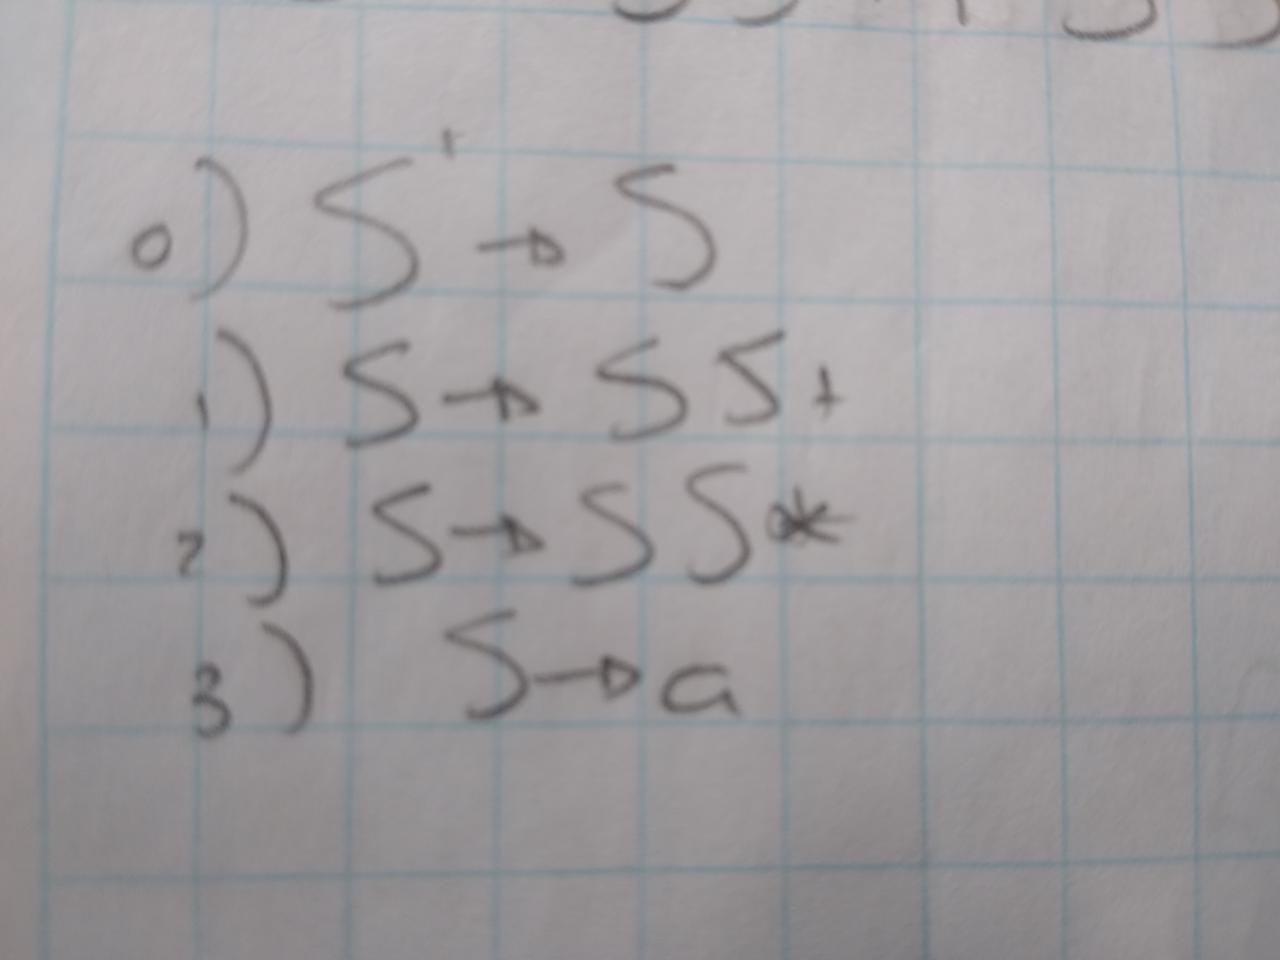 0) S' → S
1) S → S S +
2) S → S S *
3) S → a